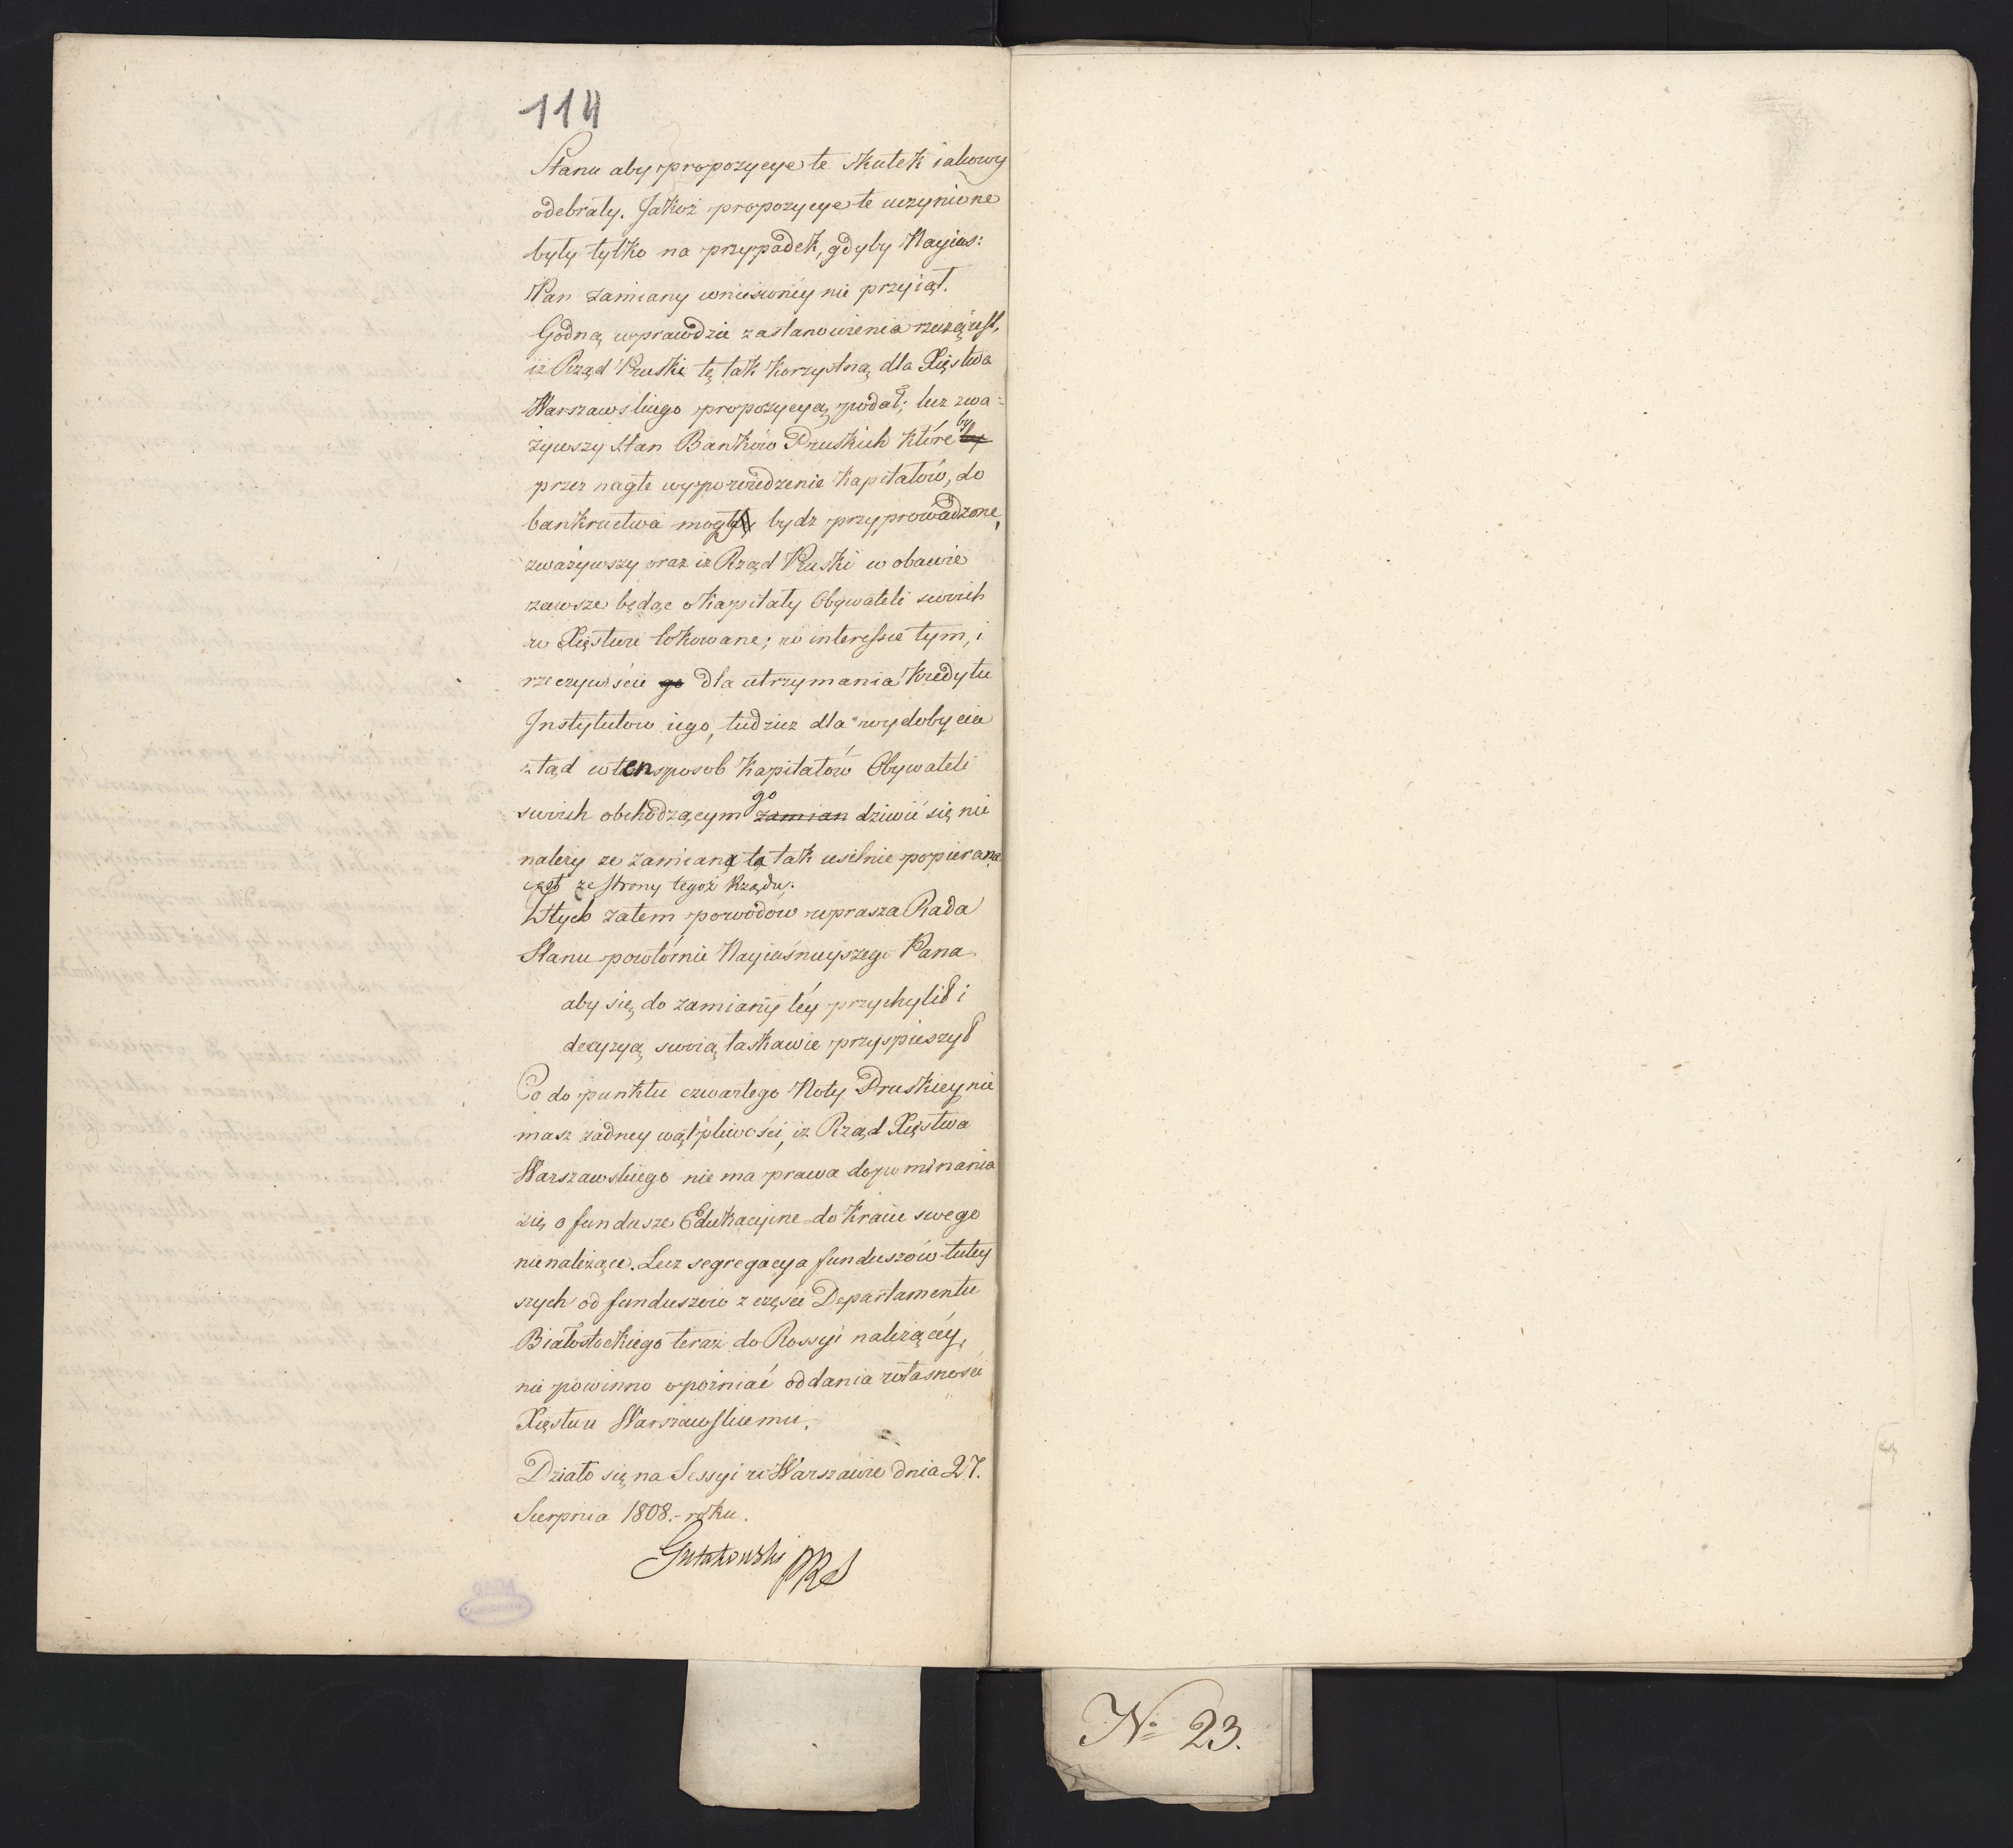 114
Stanu aby propozycye te skutek iakowy
odebrały. Jakoż propozycye te uczynione
były tylko na przypadek, gdyby Nayias:
Pan zamiany wniesioney nie przyiął.
Godną wprawdzie zastanowienia rzeczą iest,
iż Rząd Pruski tę tak korzystną dla Xięstwa
Warszawskiego propozycyą podał; lecz zwa-
żywszy stan Banków Pruskich które by
przez nagłe wypowiedzenie kapitałów, do
bankructwa mogły bydz przyprowadzone,
zważywszy oraz iż Rząd Pruski w obawie
zawsze będąc o kapitały Obywateli swoich
w Xięstwie lokowane; w interessie tym, i
rzeczywiście go dla utrzymania kredytu
Instytutow iego, tudzież dla wydobycia
ztąd w ten sposob kapitałów Obywateli
swoich obchodzącym go zamian dziwić się nie
należy ze zamiana ta tak usilnie popierana
iest ze strony tegoż Rządu.
Z tych zatem powodów uprasza Rada
Stanu powtórnie Nayiaśnieyszego Pana
aby się do zamiany téy przychylił i
decyzyą swoią łaskawie przyspieszył
Co do punktu czwartego Noty Pruskiey nie
masz żadney wątpliwości, iż Rząd Xięstwa
Warszawskiego nie ma prawa dopominania
się o fundusze Edukacyine do kraiu swego
nienależące. Lecz segregacya funduszów tutey
szych od funduszow z części Departamentu
Białostockiego teraz do Rossyi należącéy,
nie powinno opożniać oddania własności
Xięstwu Warszawskiemu.
Działo się na Sessyi w Warszawie dnia 27.
Sierpnia 1808.- roku.
Gutakowski PRS
No 23.